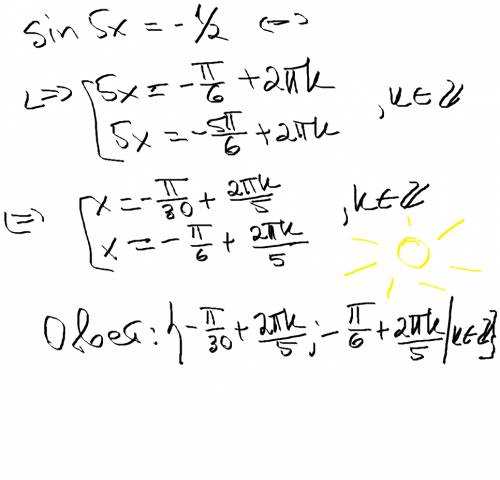 sin 5x = -1/2 <=>
<=> [ 5x = -π/6 + 2πk
5x = -5π/6 + 2πk , k∈ℤ
<=> [ x = -π/30 + 2πk/5
x = -π/6 + 2πk/5 , k∈ℤ
Ответ: {-π/30 + 2πk/5 ; -π/6 + 2πk/5 | k∈ℤ}